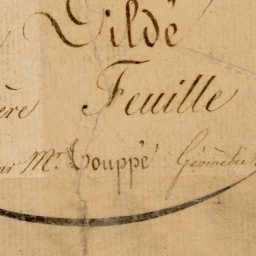 Dildé
ère Feuille
Mr. Houppé Géomètre